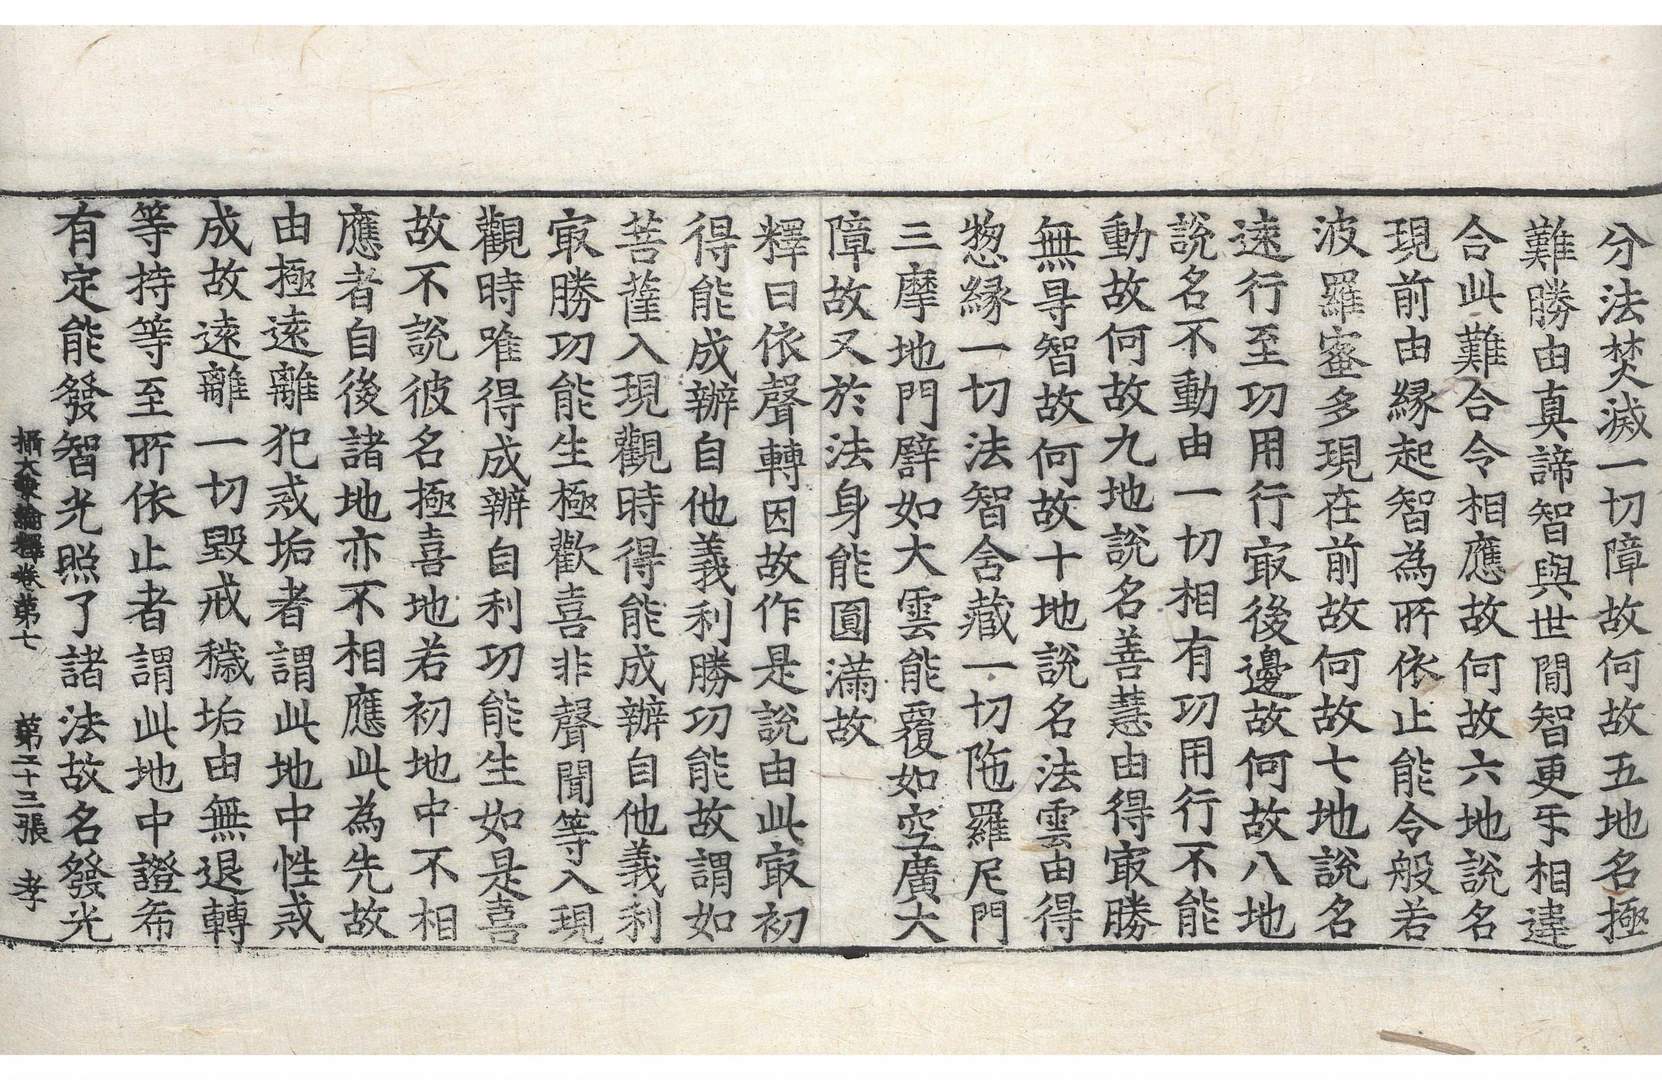 分法焚滅一切障故何故五地名極
難勝由真諦智與世間智更乐相違
合此難合令相應故何故六地說名
現前由緣起智為所依止能令般若
波羅蜜多現在前故何故七地說名
遠行至功用行㝡後邊故何故八地
說名不動由一切相有功用行不能
動故何故九地說名善慧由得㝡勝
無㝵智故何故十地說名法雲由得
惣緣一切法智含藏一切陁羅尼門
三摩地門譬如大雲能覆如空廣大
障故又於法身能圓滿故
釋曰依聲轉因故作是說由此㝡初
得能成辦自他義利勝功能故謂如
菩薩入現觀時得能成辦自他義利
㝡勝功能生極歡喜非聲聞等入現
觀時唯得成辦自利功能生如是喜
故不說彼名極喜地若初地中不相
應者自後諸地亦不相應此為先故
由極遠離犯戒垢者謂此地中性戒
成故遠離一切毀戒穢垢由無退轉
等持等至所依止者謂此地中證希
有定能發智光照了諸法故名發光
攝大乘論釋卷第七 第二十三張 孝